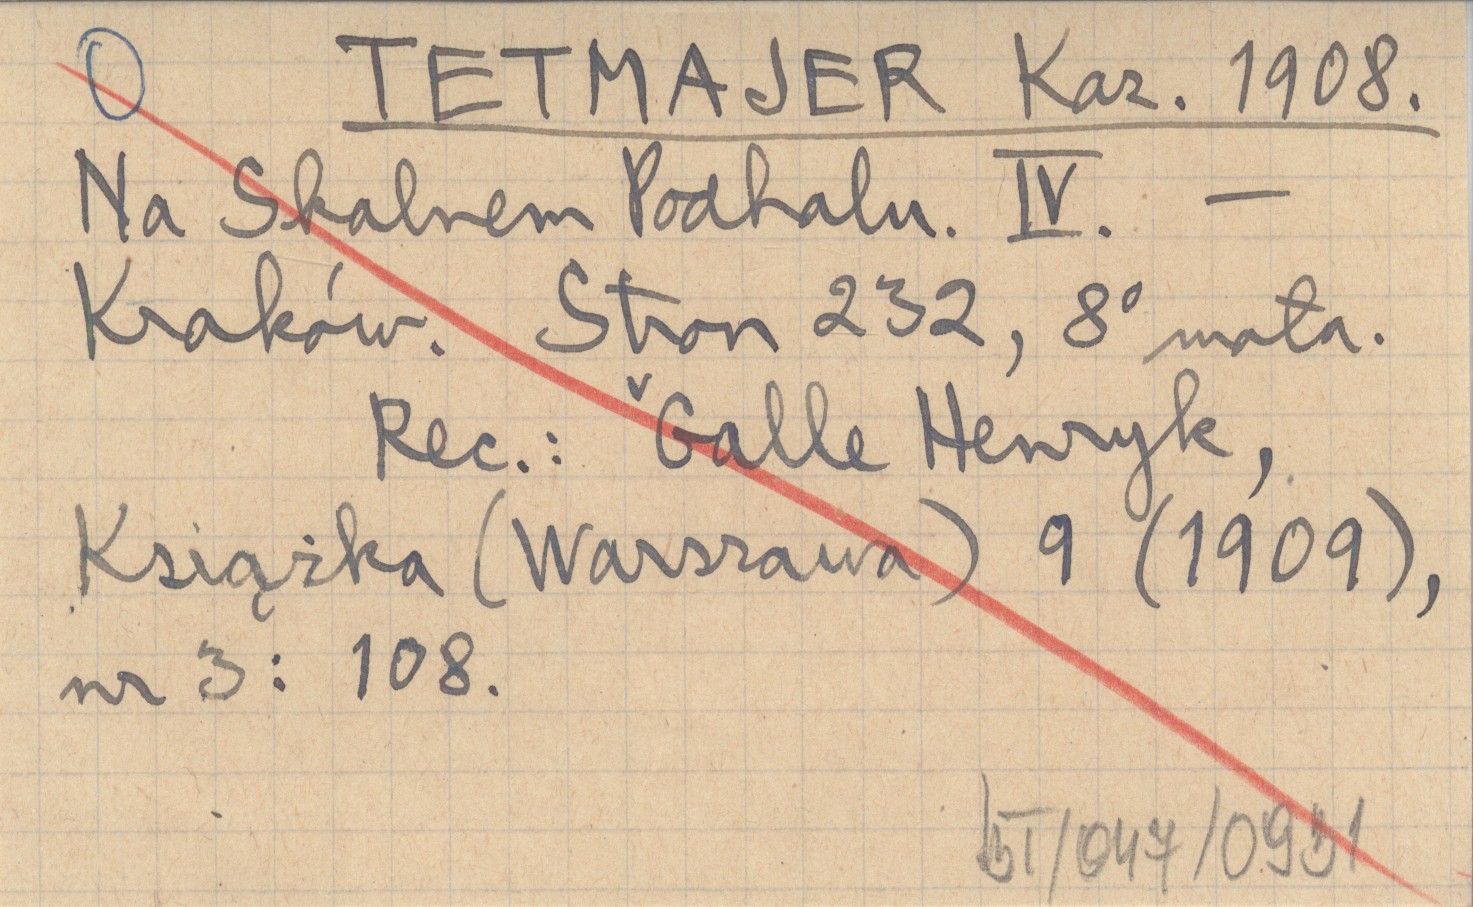 O TETMAJER Kaz. 1908.
Na Skalnem Podhalu. IV. —
Kraków. Stron 232, 8° mała.
Rec.: Galle Henryk,
Książka (Warszawa) 9 (1909),
nr 3: 108.
/047/0951